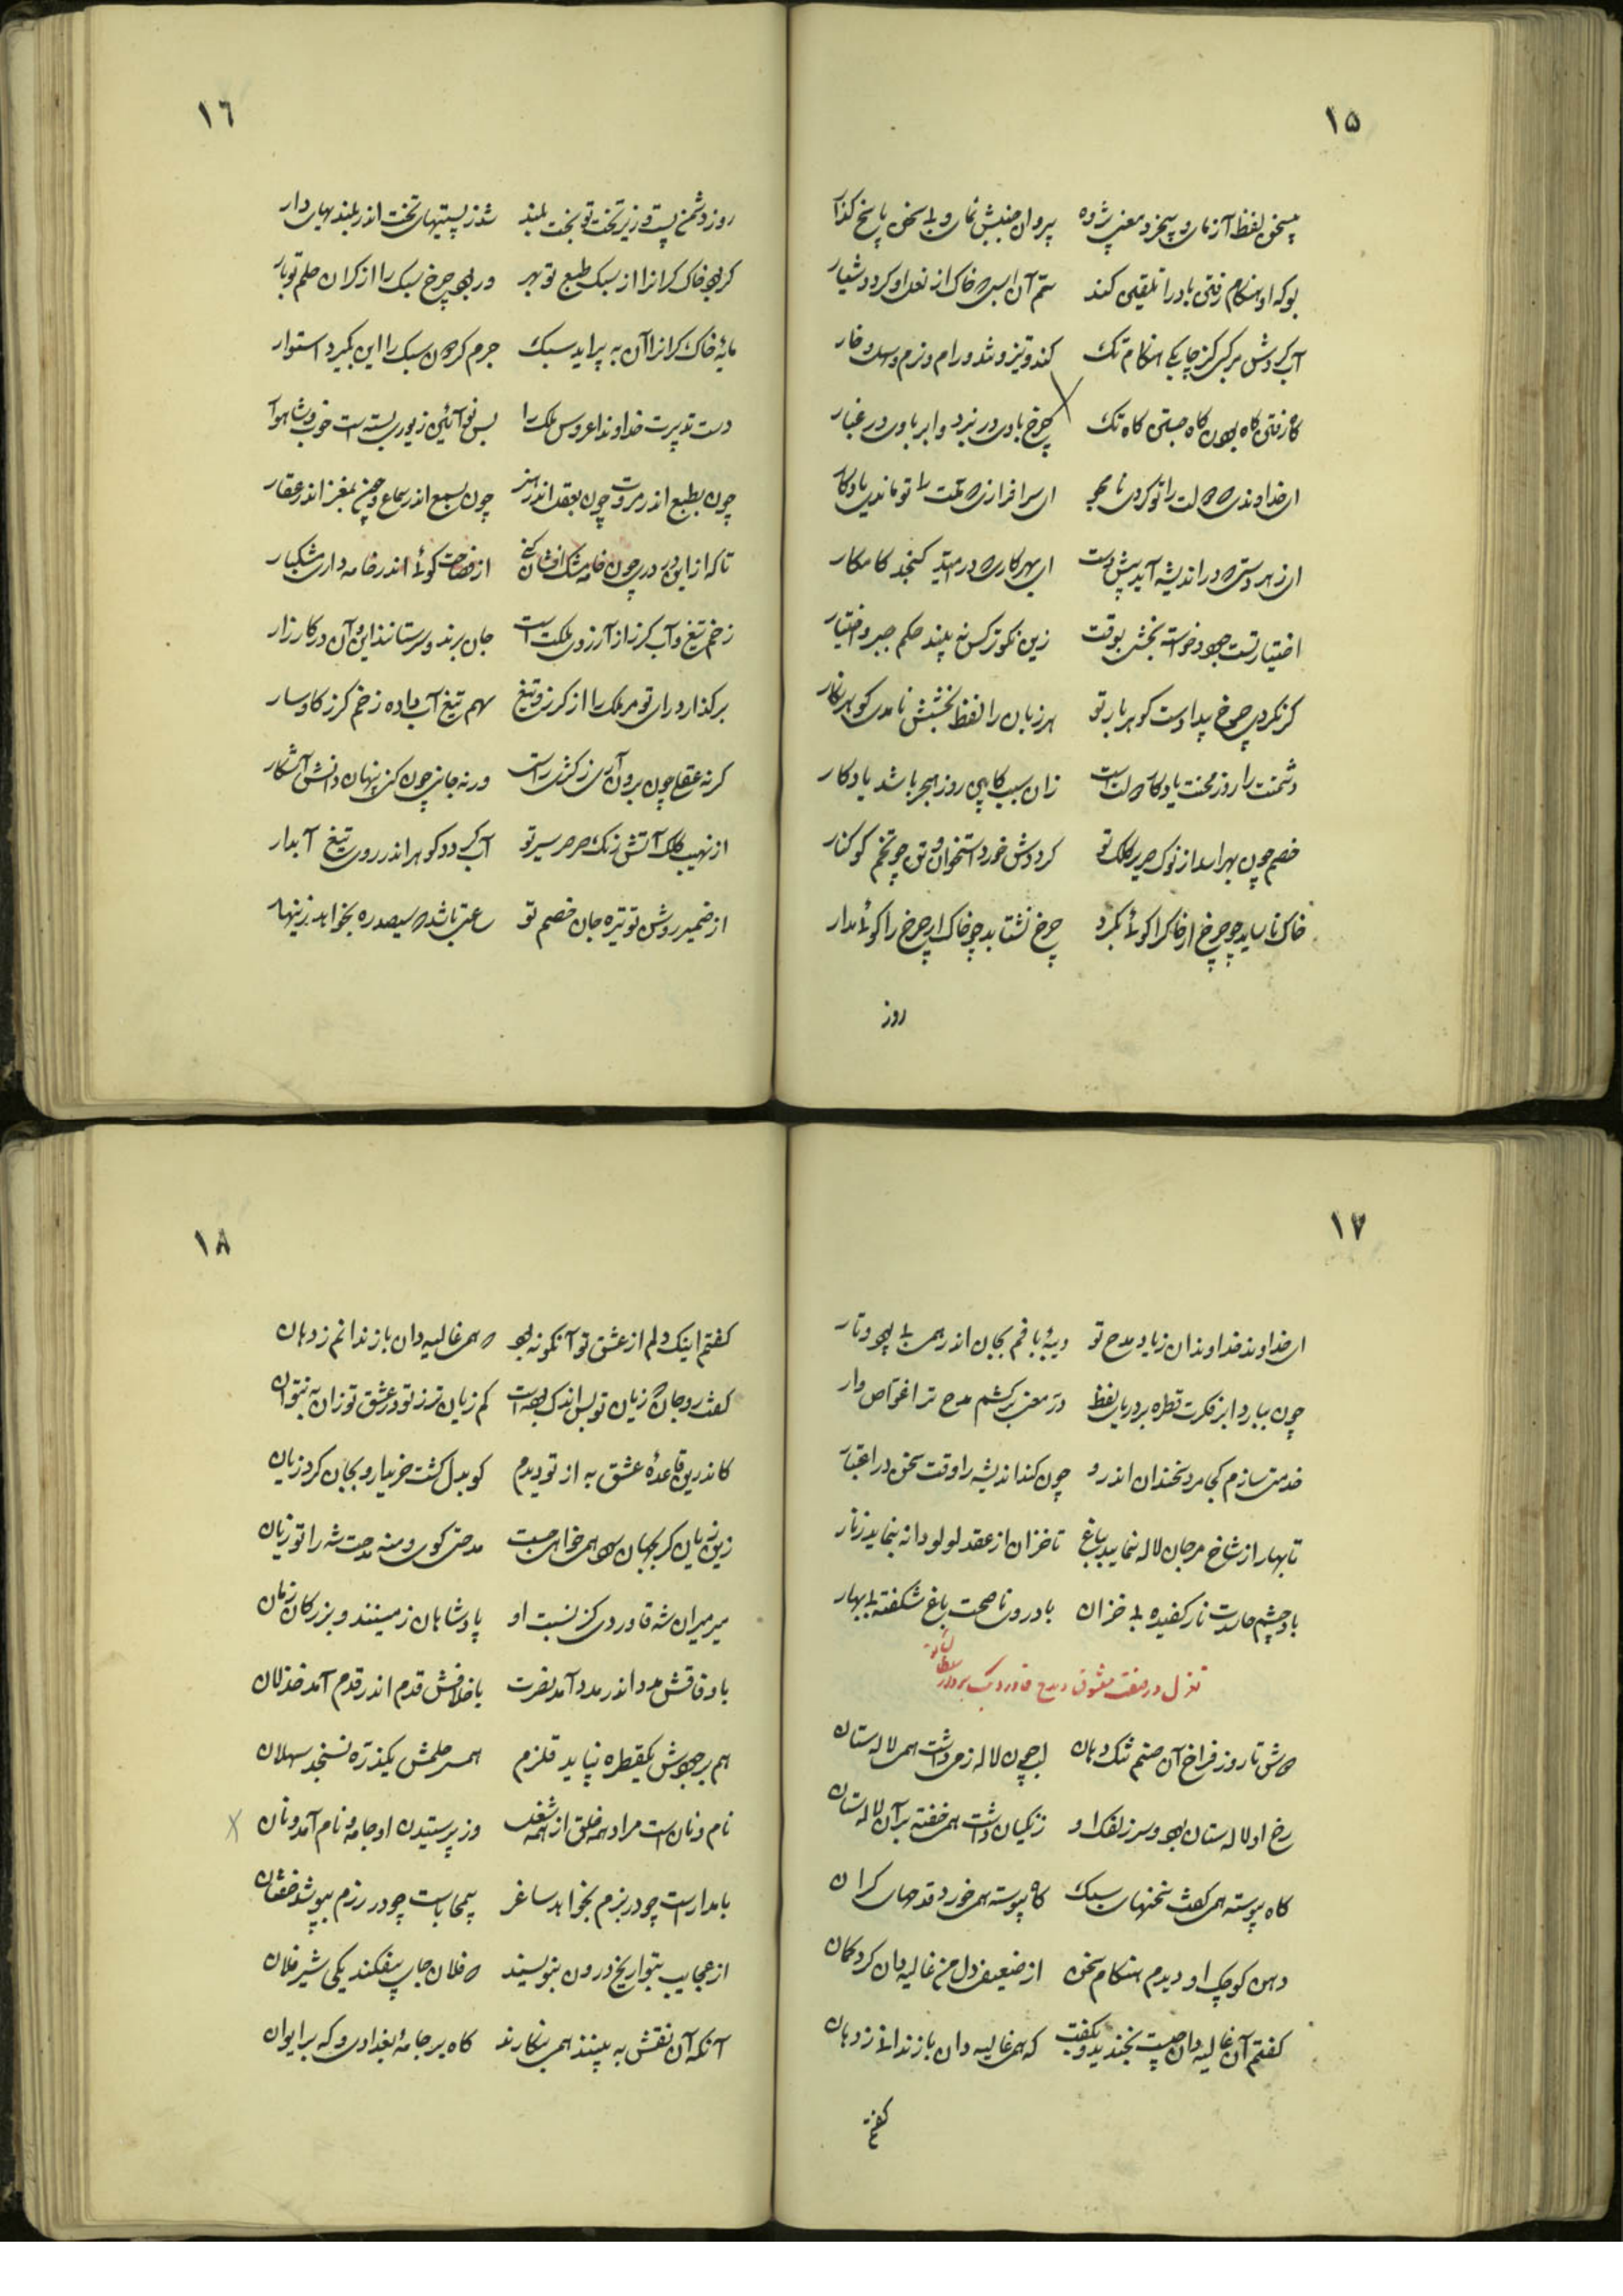 ١٥
بیسخن لفظ آزمای و بیخرد معنی پژوه پیروان جنبش نمای و بی سخن پاسخ گذار
بوکه او هنگام رفتن باد را تلقین کند خاک از نعل او گردد شیار
هنگام تک کند و تیز و تند و رام و نرم و
گاه رفتن گاه بودن گاه جستن گاه تک چرخ بادی در نبرد و ابر بادی در غبار
ای خداوندی که دولت را تو کردی نامجو ای سرافرازی که همت را تو ماندی یادگار
ای ز هر در اندیشه آید پیش دست ای بهر کاری که در کامکار
اختیار تست جود بوقت زین نکوتر کس نه بیند حکم جبر و اختیار
گر نکردی چرخ پیدا دست گوهر بار تو هر زبان را لفظ بخشش نامدی گوهر نگار
دشمنت را روز محنت یادگار زان سبب روز هجر باشد یادگار
خصم چون بهراسد از نوک صریر کلک تو گرددش خرد استخوان و تن چو تخم کوکنار
خاک ناساید چو چرخ ار خاک را گوئی بگرد چرخ نشتابد چو خاک ار چرخ را گوئی مدار
روز
١٦
روز دشمن پست و زیر تخت تو بخت بلند شد ز پستیهای تخت اندر بلندیهای دار
گر بود خاک گرانرا از سبک طبع تو بهر ور بود چرخ سبک را از گران حلم تو بار
مایهٔ خاک گرانرا آن به پراید سبک جرم گردون سبک را این بگیرد استوار
دست تدبیرت خداوندا عروس ملک را بس نو آئین زیوری بسته است خوب و شاهوار
چون بطبع اندر مروت چون بعقل اندر هنر چون بسمع اندر سماع و چون بمغز اندر عقار
تا که از این در دری چون خامه مشک افشان کنی از فصاحت گوئی اندر خامه داری مشکبار
زخم تیغ و آب گرز از آرزوی ملکت است جان برند و سر ستانند این و آن در کارزار
برگذار درای تو مر ملک را از گرز و تیغ سهم تیغ آب داده زخم گرز گاوسار
گر نه عقلی چون برون آری ز کژی راستی ور نه جانی چون کنی پنهان دانش آشکار
از نهیب کلک آتش رنگ صرصر سیر تو آب گردد گوهر اندر روی تیغ آبدار
از ضمیر روشن تو تیره جان خصم تو ساعتی باشد که سیصد ره بخواهد زینهار
١٧
ای خداوند خداوندان زیاد مدح تو دیبه بافم بجان اندر همی بی پود و تار
چون ببارد ابر فکرت قطره بر دریای لفظ در معنی برکشم مدح ترا غواص وار
خدمتی سازم کجا مرد سخندان اندر و چون کند اندیشه را وقت سخن در اعتبار
تا بهار از شاخ مرجان لاله بنماید بباغ تا خزان از عقد لولو دانه بنماید ز نار
باد چشم حاسدت نار کفیده بی خزان باد روی ناصحت باغ شکفته بی بهار
تغزل در صفت معشوق و مدح قاورد بک برادر سلطان
دوش تا روز فراخ آن صنم تنک دهان لب چون لاله ز می داشت همی لاله ستان
رخ او لاله ستان بود و سر زلفک او زنگیان داشت همی خفته بر آن لاله ستان
گاه پیوسته همی گفت سخنهای سبک گاه پیوسته همی خورد قدحهای گران
دهن کوچک او دیدم هنگام سخن از ضعیفی دل من غالیه دان کرد گمان
گفتم آن غالیه دان چیست بخندید و بگفت که همی غالیه دان باز ندانی ز دهان
گفتم
١٨
گفتم اینک دلم از عشق تو آنگونه بود که همی غالیه دان باز ندانم ز دهان
گفت رو جان زیان تو بس اندک بوده است کم زیان تر ز تو در عشق تو زان به نتوان
کاندرین قاعدهٔ عشق به از تو دیدم کو بدل گشت خریدار و بجان کرد زیان
زین زیان گر بجهان سود همی خواهی جست مدحتی گوی و منه مدحت شه را تو زیان
میر میران شه قاوردی کز نسبت او پادشاهان زمینند و بزرگان زمان
با وفاقش مدد اندر مدد آمد نصرت با خلافش قدم اندر قدم آمد خذلان
هم بر جودش یکقطره نپاید قلزم همسر حلمش یکذره نسنجد سهلان
نام و نان است مراد همه خلق از همه شغل وز پرستیدن او جامه و نام آمد و نان
بامدارا است چو در بزم بخواهد ساغر بیمحاباست چو در رزم بپوشد خفتان
از عجایب بتواریخ درون بنویسند که فلان جای بیفکند یکی شیر فلان
آنکه آن نقش به بیند همی بنگارند گاه بر جامهٔ بغدادی و گه بر ایوان